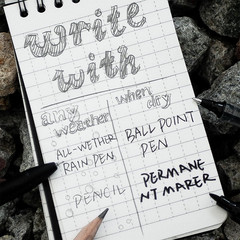 write
with
any
weather
when
dry
ALL-WETHER
RAIN PEN
BALL POINT
PEN
PENCIL
PERMANE
NT MARER